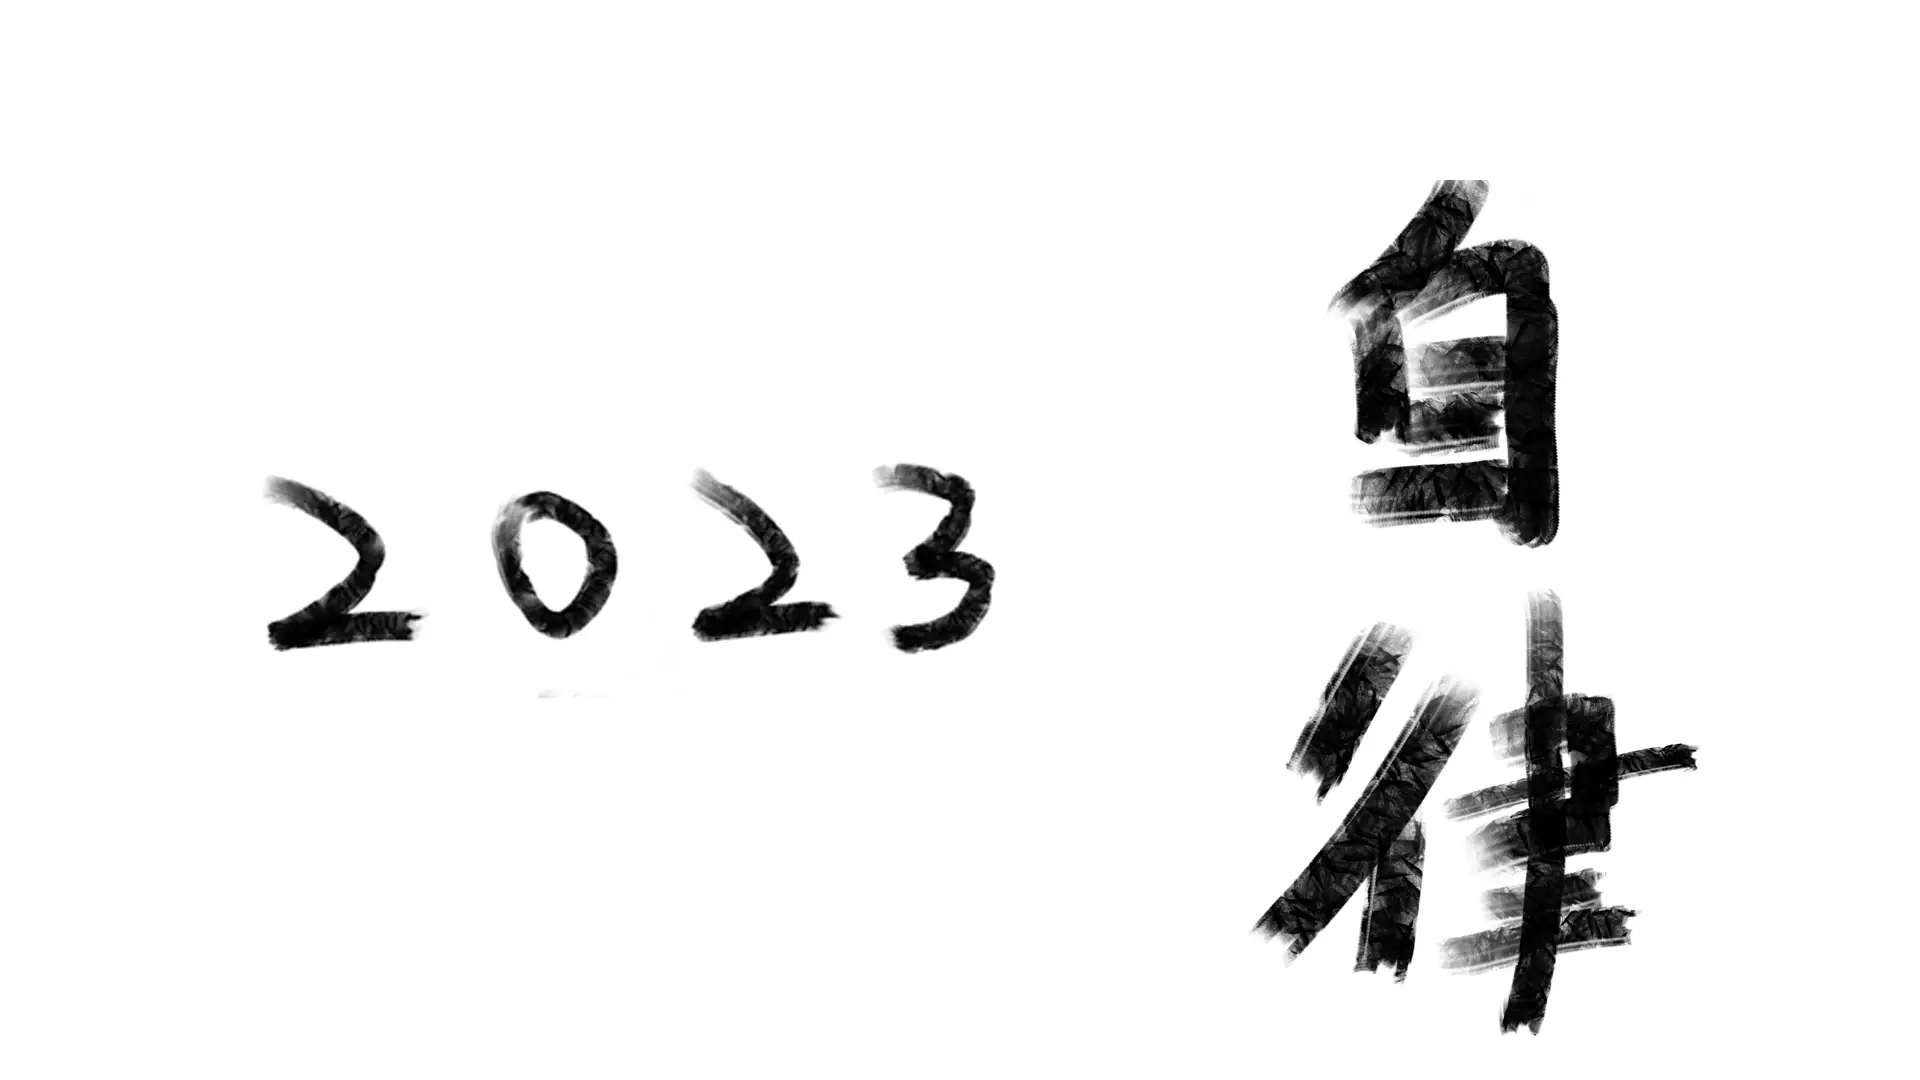 2023
自律